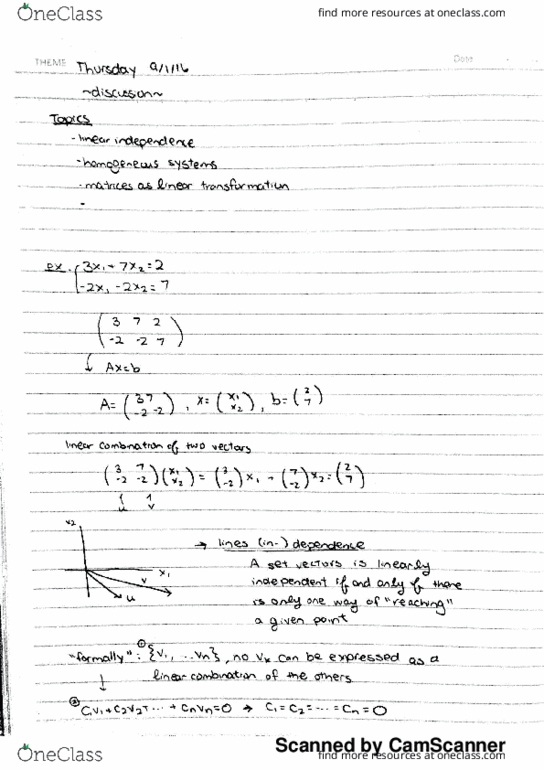 OneClass
find more resources at oneclass.com
THEME Thursday 9/1/16 Date
~discussion~
Topics
- linear independence
- homogeneous systems
- matrices as linear transformation
-
ex. { 3x₁ + 7x₂ = 2
-2x₁ - 2x₂ = 7
( 3 7 2
-2 -2 7 )
↓ Ax=b
A = ( 3 7 / -2 -2 ), x = ( x₁ / x₂ ), b = ( 2 / 7 )
linear combination of two vectors
( 3 7 / -2 -2 )( x₁ / x₂ ) = ( 3 / -2 ) x₁ + ( 7 / -2 ) x₂ = ( 2 / 7 )
u v
x₂
x₁
v
u
→ lines (in-) dependence
A set vectors is linearly
independent if and only if there
is only one way of "reaching"
a given point
"formally": ① {V₁, ...Vn}, no Vk can be expressed as a
linear combination of the others
↓
② C₁V₁ + C₂V₂ + ... + CnVn = 0 → C₁ = C₂ = ... = Cn = 0
Scanned by CamScanner
OneClass
find more resources at oneclass.com